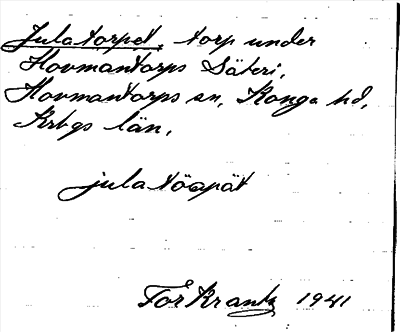 Julatorpet, torp under
Hovmantorps Säteri,
Hovmantorps sn, Konga hd,
Krbgs län,
jula töapät
Tor Krantz 1941